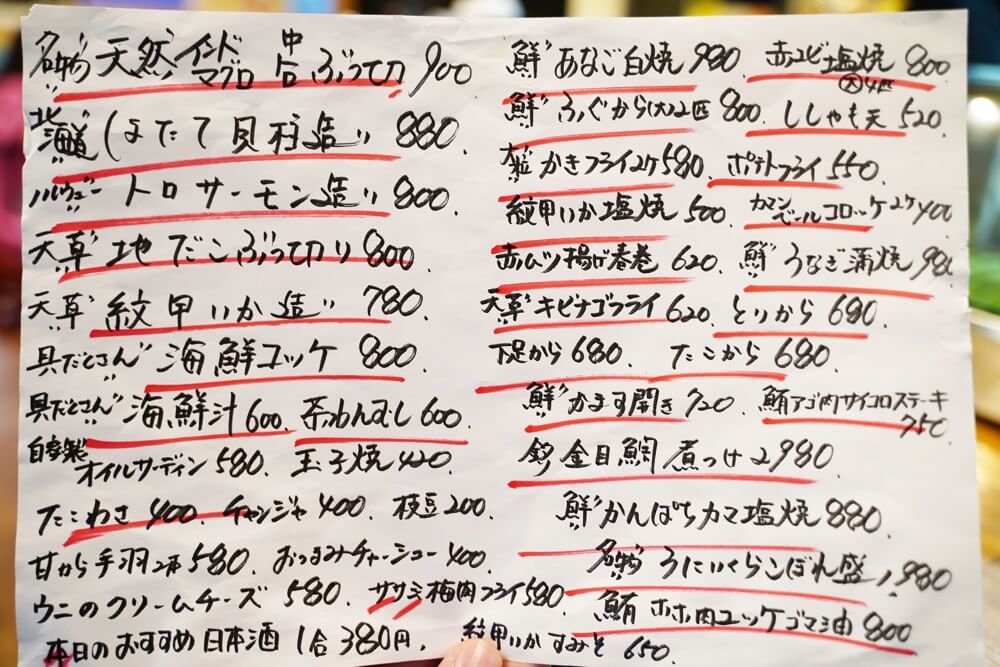 名物 天然 インドマグロ 中合 ぶつ切 900
北海道 ほたて貝柱造り 880
ノルウェー トロサーモン造り 800.
天草 地だこぶつ切り 800.
天草 紋甲いか造り 780
具だくさん 海鮮ユッケ 800
具だくさん 海鮮汁 600. 茶わんむし 600
自家製 オイルサーディン 580. 玉子焼 420
たこわさ 400. チャンジャ 400. 枝豆 200.
甘から手羽 2本 580. おつまみチャーシュー 400
ウニのクリームチーズ 580. ササミ梅肉フライ 580.
本日のおすすめ日本酒 1合 380円. 紋甲いかすみそ 650.
鮮 あなご白焼 980 赤エビ塩焼 大4匹 800
鮮 ふぐから(大)2匹 800. ししゃも天 520.
大粒 かきフライ 2ケ 580. ポテトフライ 550.
紋甲いか塩焼 500. カマンベールコロッケ 2ケ 400
赤ムツ揚げ春巻 620. 鮮 うなぎ蒲焼 980
天草 キビナゴフライ 620. とりから 680.
下足から 680. たこから 680.
鮮 かます開き 720 鮪アゴ肉サイコロステーキ 750
金目鯛 煮つけ 2980
鮮 かんぱちカマ塩焼 880
名物 うにいくらこぼれ盛 1,980
鮪 ホホ肉ユッケゴマ油 800